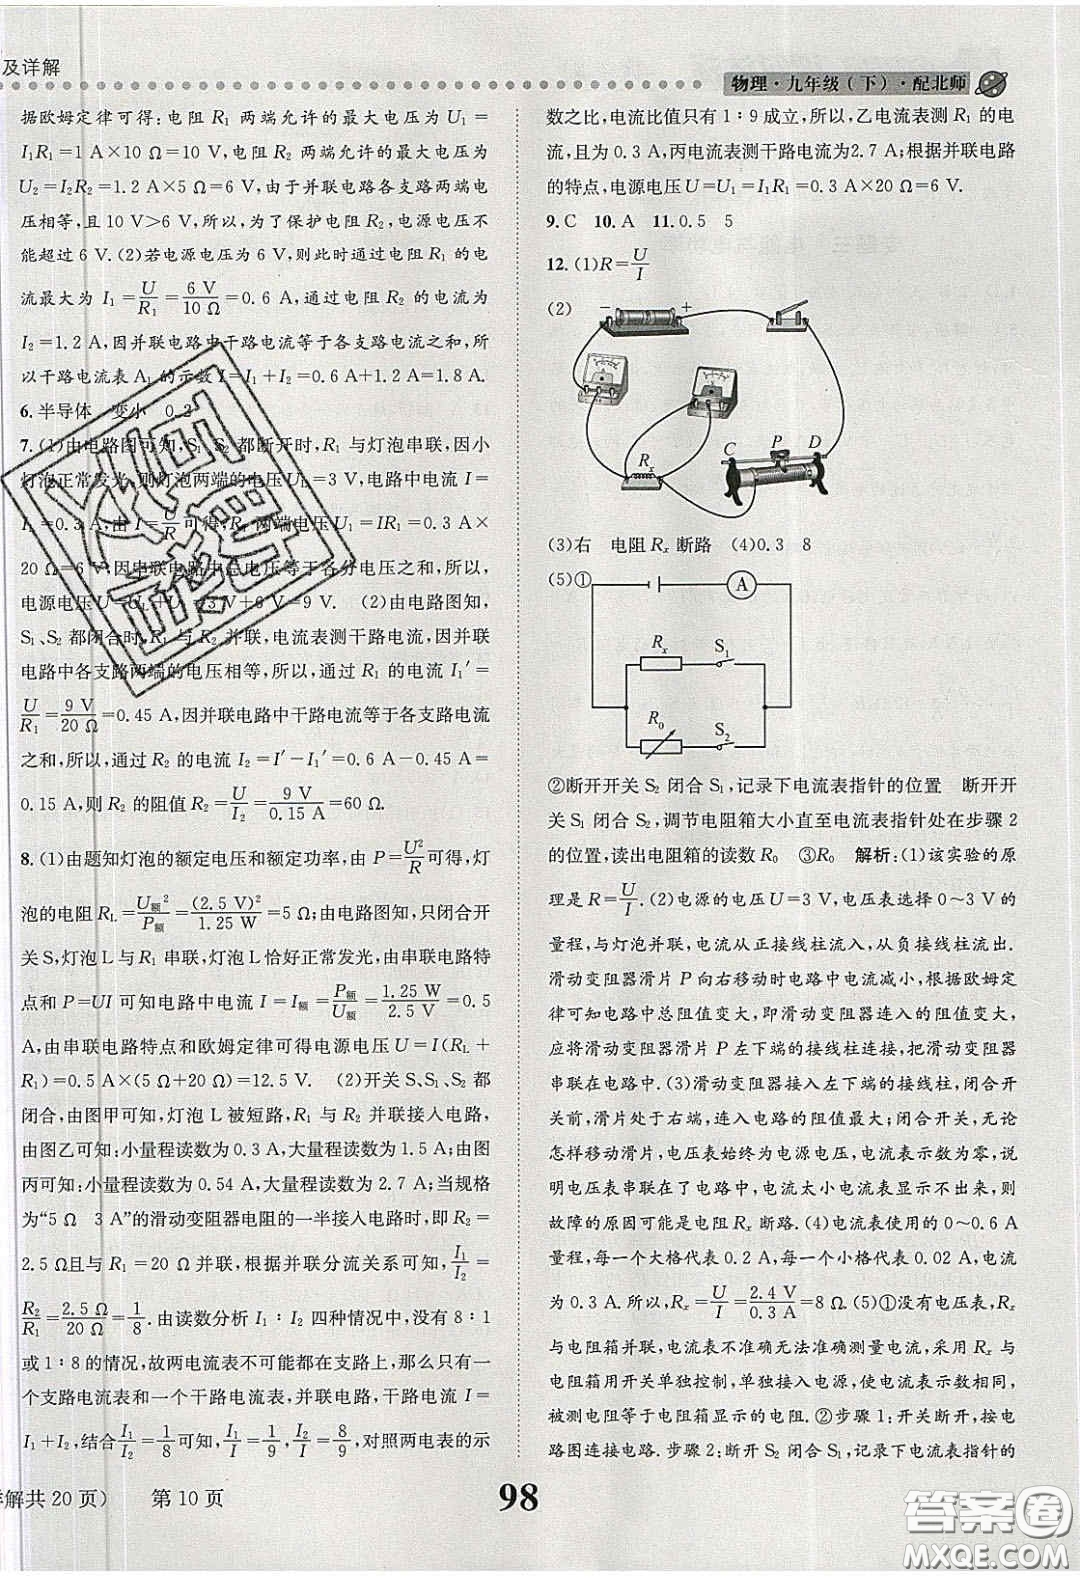 及详解
物理·九年级(下)·配北师
据欧姆定律可得:电阻 R₁ 两端允许的最大电压为
I₁R₁=1 A×10 Ω=10 V,电阻 R₂ 两端允许的最大电压为
U₂=I₂R₂=1.2 A×5 Ω=6 V,由于并联电路各支路两端电
压相等,且 10 V>6 V,所以,为了保护电阻 R₂,电源电压不能
超过 6 V.(2)若电源电压为 6 V,则此时通过电阻 R₁ 的电
流最大为 I₁=U/R₁=6 V/10 Ω=0.6 A,通过电阻 R₂ 的电流为
I₂=1.2 A,因并联电路中干路电流等于各支路电流之和,所
以干路电流表 A₁ 的示数 I=I₁+I₂=0.6 A+1.2 A=1.8 A.
6.半导体 变小 0.2
7.(1)由电路图可知,S₁、S₂ 都断开时,R₁ 与灯泡串联,因小
灯泡正常发光,则灯泡两端的电压 U_L=3 V,电路中电流 I=
I_L=0.3 A,由 I=U/R可得,R₁ 两端电压 U₁=IR₁=0.3 A×
20 Ω=6 V,因串联电路中总电压等于各分电压之和,所以,
电源电压 U=U_L+U₁=3 V+6 V=9 V. (2)由电路图知,
S₁、S₂ 都闭合时,R₁ 与 R₂ 并联,电流表测干路电流,因并联
电路中各支路两端的电压相等,所以,通过 R₁ 的电流 I₁′=
U/R₁=9 V/20 Ω=0.45 A,因并联电路中干路电流等于各支路电流
之和,所以,通过 R₂ 的电流 I₂=I′−I₁′=0.6 A−0.45 A=
0.15 A,则 R₂ 的阻值 R₂=U/I₂=9 V/0.15 A=60 Ω.
8.(1)由题知灯泡的额定电压和额定功率,由 P=U²/R可得,灯
泡的电阻 R_L=U额²/P额=(2.5 V)²/1.25 W=5 Ω;由电路图知,只闭合开
关 S,灯泡 L 与 R₁ 串联,灯泡恰好正常发光,由串联电路特
点和 P=UI 可知电路中电流 I=I额=P额/U额=1.25 W/2.5 V=0.5
A,由串联电路特点和欧姆定律可得电源电压 U=I(R_L+
R₁)=0.5 A×(5 Ω+20 Ω)=12.5 V. (2)开关 S、S₁、S₂ 都
闭合,由图甲可知,灯泡 L 被短路,R₁ 与 R₂ 并联接入电路,
由图乙可知:小量程读数为 0.3 A,大量程读数为 1.5 A;由图
丙可知:小量程读数为 0.54 A,大量程读数为 2.7 A;当规格
为“5 Ω 3 A”的滑动变阻器电阻的一半接入电路时,即 R₂=
2.5 Ω且与 R₁=20 Ω 并联,根据并联分流关系可知,I₁/I₂=
R₂/R₁=2.5 Ω/20 Ω=1/8.由读数分析 I₁∶I₂ 四种情况中,没有 8∶1
或 1∶8 的情况,故两电流表不可能都在支路上,那么只有一
个支路电流表和一个干路电流表,并联电路,干路电流 I=
I₁+I₂,结合I₁/I₂=1/8可知,I₁/I=1/9,I₂/I=8/9,对照两电表的示
数之比,电流比值只有 1∶9 成立,所以,乙电流表测 R₁ 的电
流,且为 0.3 A,丙电流表测干路电流为2.7 A;根据并联电路
的特点,电源电压 U=U₁=I₁R₁=0.3 A×20 Ω=6 V.
9.C 10.A 11.0.5 5
12.(1)R=U/I
(2)
− +
Rx
C P D
(3)右 电阻 Rx 断路 (4)0.3 8
(5)①
A
Rx S₁
R₀ S₂
②断开开关 S₂ 闭合 S₁,记录下电流表指针的位置 断开开
关 S₁ 闭合 S₂,调节电阻箱大小直至电流表指针处在步骤 2
的位置,读出电阻箱的读数 R₀ ③R₀ 解析:(1)该实验的原
理是 R=U/I.(2)电源的电压 U=3 V,电压表选择 0～3 V 的
量程,与灯泡并联,电流从正接线柱流入,从负接线柱流出.
滑动变阻器滑片 P 向右移动时电路中电流减小,根据欧姆定
律可知电路中总阻值变大,即滑动变阻器连入的阻值变大,
应将滑动变阻器滑片 P 左下端的接线柱连接,滑动变阻器
串联在电路中.(3)滑动变阻器接入左下端的接线柱,闭合开
关前,滑片处于右端,连入电路的阻值最大;闭合开关,无论
怎样移动滑片,电压表始终为电源电压,而电流表没有示数,说
明电压表串联在了电路中,电流太小电流表显示不出来,则
故障的原因可能是电阻 Rx 断路.(4)电流表使用的 0～0.6 A
量程,每一个大格代表 0.2 A,每一个小格代表 0.02 A,电流
为 0.3 A.所以,Rx=U/I=2.4 V/0.3 A=8 Ω.(5)①没有电压表,Rx
与电阻箱并联,电流表不准确无法准确测量电流,采用 Rx 与
电阻箱用开关单独控制,单独接入电源,使电流表示数相同,
被测电阻等于电阻箱显示的电阻.②步骤 1:开关断开,按电
路图连接电路.步骤 2:断开 S₂ 闭合 S₁,记录下电流表指针的
详解共 20 页) 第 10 页
98
答案圈
MXQE.COM